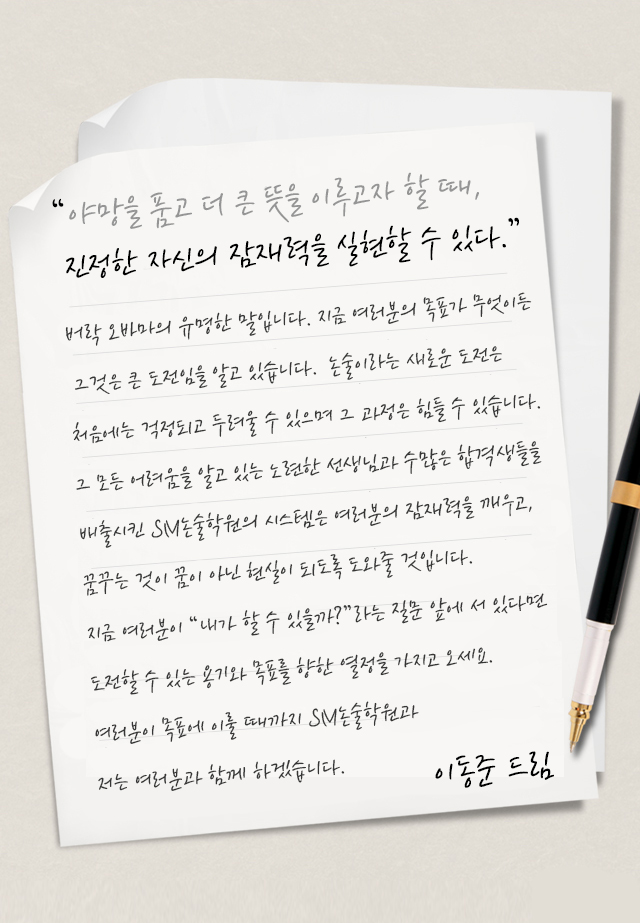 “야망을 품고 더 큰 뜻을 이루고자 할 때,
진정한 자신의 잠재력을 실현할 수 있다.”
버락 오바마의 유명한 말입니다. 지금 여러분의 목표가 무엇이든
그것은 큰 도전임을 알고 있습니다. 논술이라는 새로운 도전은
처음에는 걱정되고 두려울 수 있으며 그 과정은 힘들 수 있습니다.
그 모든 어려움을 알고 있는 노련한 선생님과 수많은 합격생들을
배출시킨 SM논술학원의 시스템은 여러분의 잠재력을 깨우고,
꿈꾸는 것이 꿈이 아닌 현실이 되도록 도와줄 것입니다.
지금 여러분이 “내가 할 수 있을까?”라는 질문 앞에 서 있다면
도전할 수 있는 용기와 목표를 향한 열정을 가지고 오세요.
여러분이 목표에 이룰 때까지 SM논술학원과
저는 여러분과 함께 하겠습니다.
이동준 드림